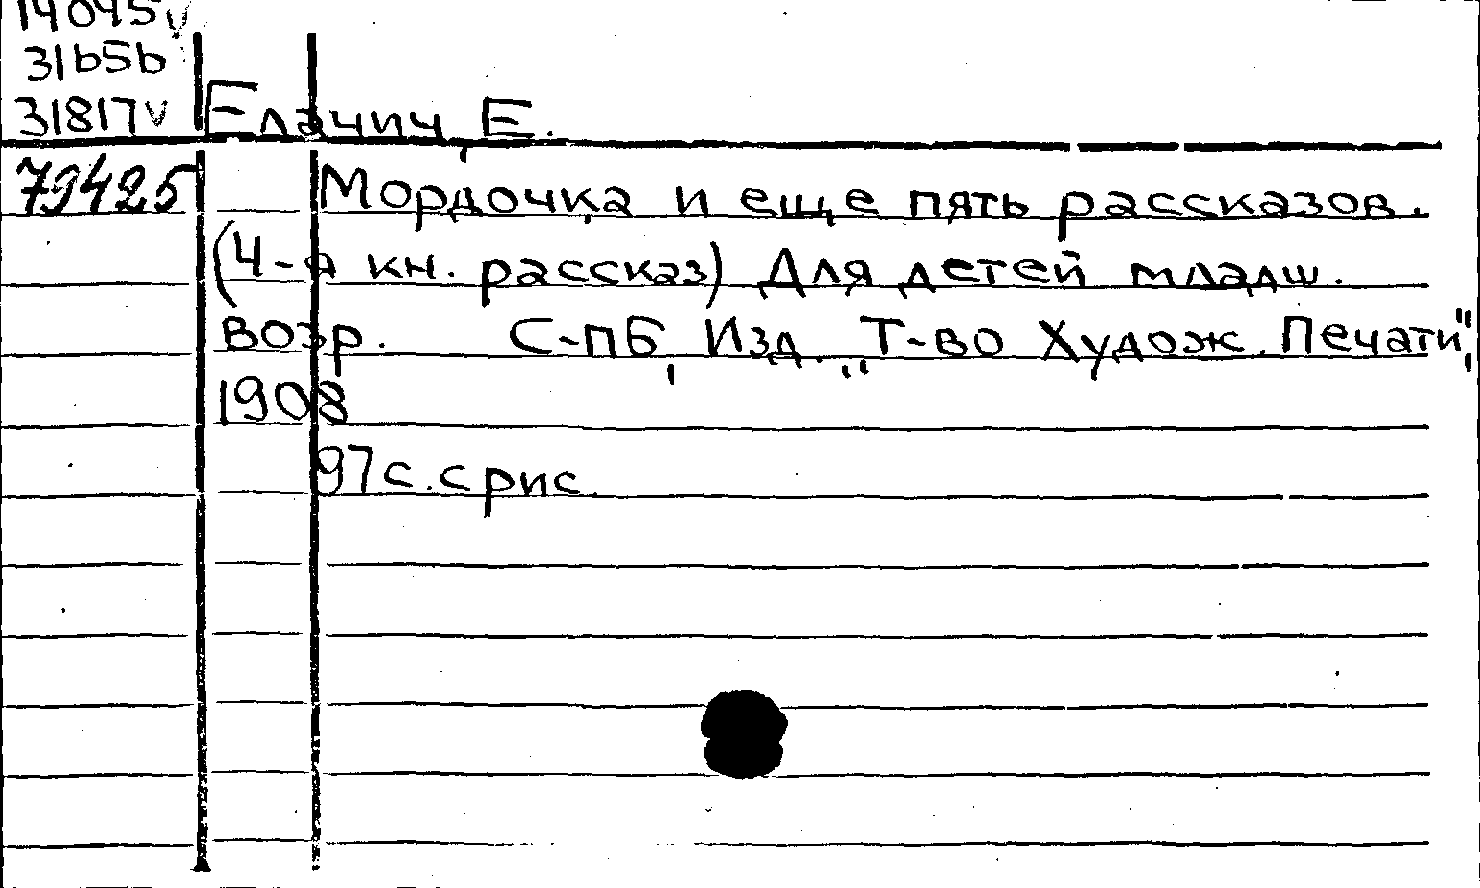 14045 v
31656
31817 v
Елачич, Е.
79425
Мордочка и еще пять рассказов.
(4-я кн. рассказ) Для детей младш.
возр. С-ПБ, Изд. „Т-во Худож. Печати",
1908
97с. с рис.